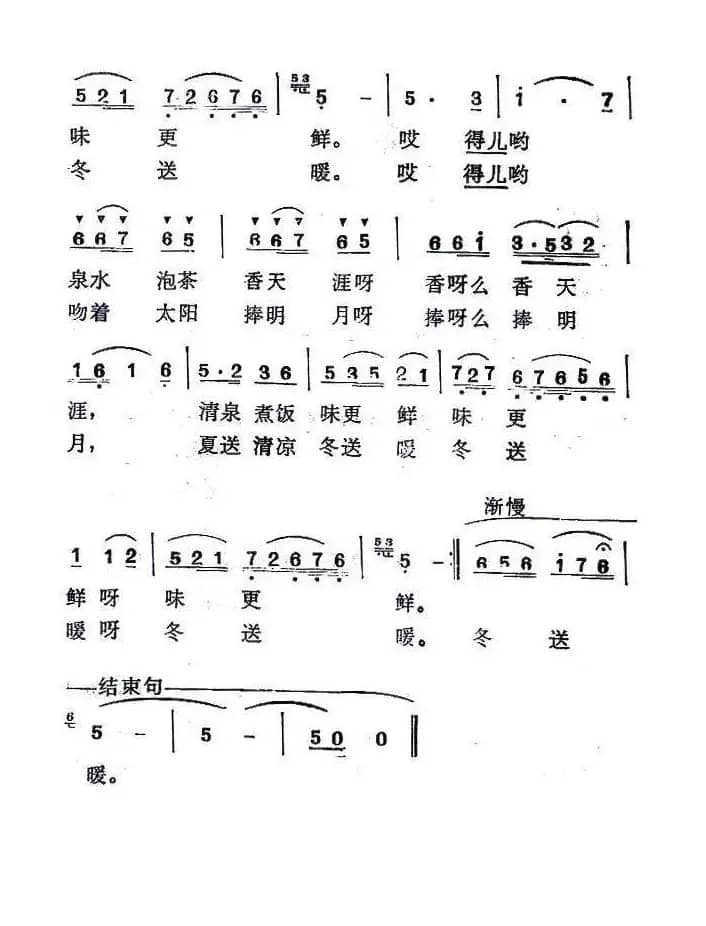 5 2 1 7 2 6 7 6 | 53 5 - | 5 · 3 | i · 7 |
味 更 鲜。 哎 得儿哟
冬 送 暖。 哎 得儿哟
6 6 7 6 5 | 6 6 7 6 5 | 6 6 i 3·5 3 2 |
泉水 泡茶 香天 涯呀 香呀么 香 天
吻着 太阳 捧明 月呀 捧呀么 捧 明
1 6 1 6 | 5·2 3 6 | 5 3 5 2 1 | 7 2 7 6 7 6 5 6 |
涯, 清泉 煮饭 味更 鲜 味 更
月, 夏送 清凉 冬送 暖 冬 送
渐慢
1 1 2 | 5 2 1 7 2 6 7 6 | 53 5 - :‖ 6 5 6 i 7 6 |
鲜 呀 味 更 鲜。
暖 呀 冬 送 暖。 冬 送
结束句
6 5 - | 5 - | 5 0 0 ‖
暖。